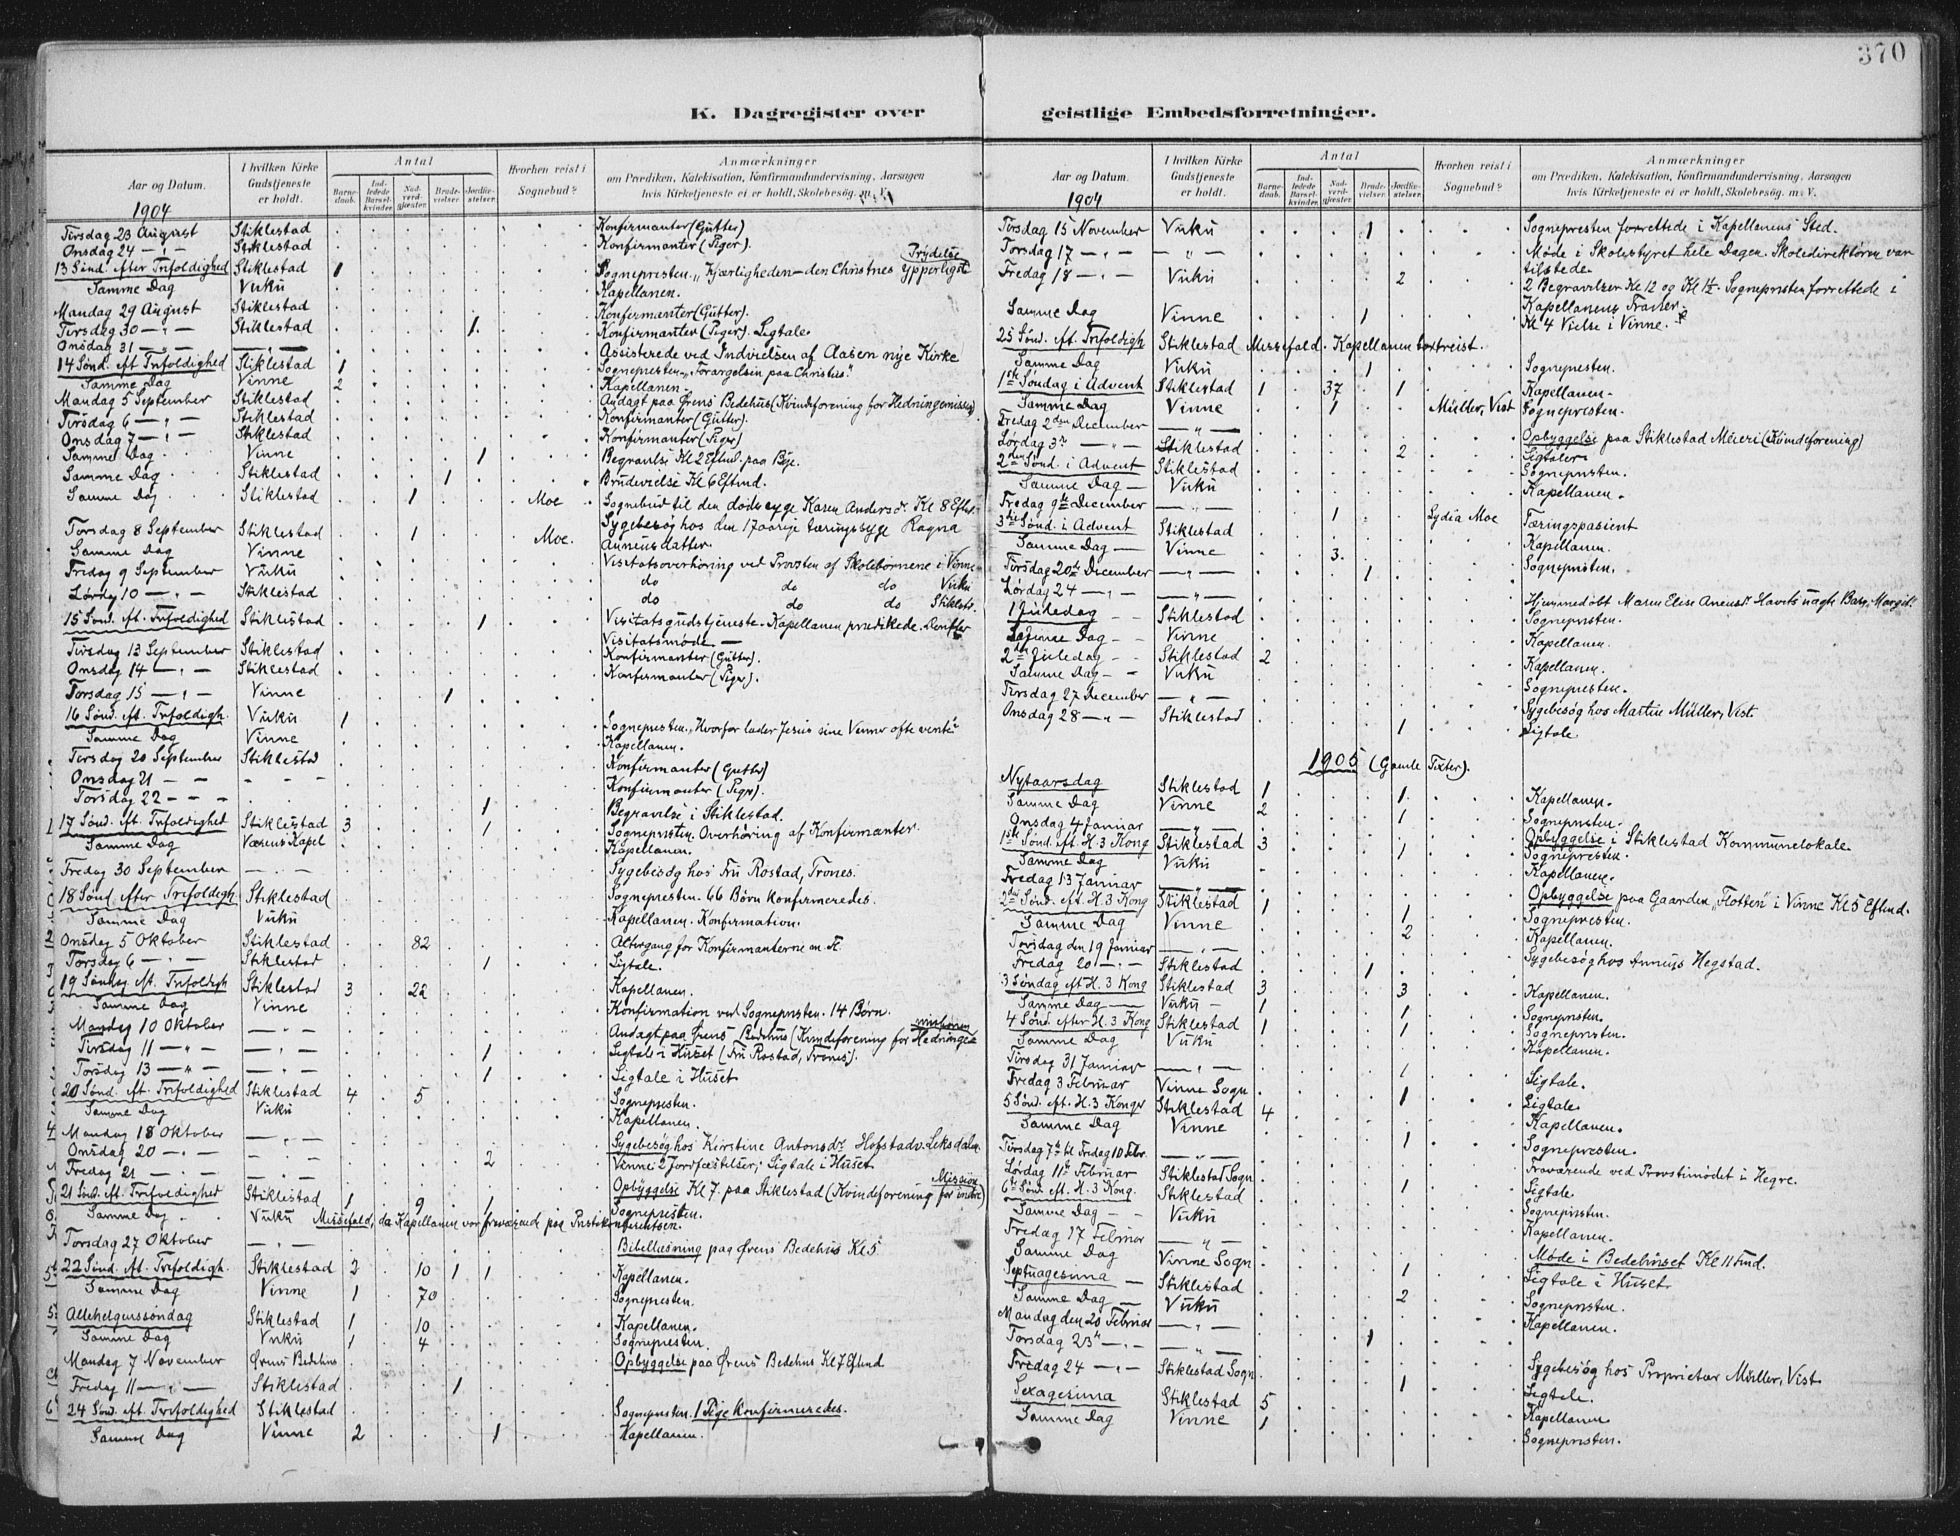 370
K. Dagregister over geistlige Embedsforretninger.
Aar og Datum. I hvilken Kirke Gudstjeneste er holdt. Antal Barnedaab. Indledede Barselkvinder. Nadverdgjæster. Brudevielser. Jordfæstelser. Hvorhen reist i Sognebud? Anmærkninger om Prædiken, Katekisation, Konfirmandundervisning, Aarsagen hvis Kirketjeneste ei er holdt, Skolebesøg. m. V.
1904
Tirsdag 23 August Stiklestad Konfirmanter (Gutter)
Onsdag 24 — " — Stiklestad Konfirmanter (Piger).
13 Sønd. efter Trifoldighed Stiklestad 1 Sognepresten. "Kjærligheden – den Christnes ypperligste Prydelse
Samme Dag Vuku Kapellanen.
Mandag 29 August Stiklestad Konfirmanter (Gutter).
Tirsdag 30 — " — Stiklestad 1. Konfirmanter (Piger). Ligtale.
Onsdag 31 — " — Assisterede ved Indvielsen af Aasen nye Kirke
14 Sønd. eft Trifoldighed Stiklestad 1 Sognepresten. "Forargelsen paa Christus".
Samme Dag Vinne 2 Kapellanen.
Mandag 5 September Stiklestad Andagt paa Ørens Bedehus (Kvindeforening for Hedningemission)
Tirsdag 6 — " — Stiklestad Konfirmanter (Gutter).
Onsdag 7 — " — Stiklestad Konfirmanter (Piger)
Samme Dag Vinne 1 Begravelse Kl 2 Eftmd. paa Bye.
Samme Dag Stiklestad 1 Brudevielse Kl 6 Eftmd.
Samme Dag Stiklestad 1 Moe Sognebud til den dødssyge Karen Andersd. Kl 8 Efter.
Torsdag 8 September Stiklestad 1 Moe. Sygebesøg hos den 17 aarige tæringssyge Ragna
Samme Dag Vinne Anneusdatter.
Fredag 9 September Vuku Visitatsoverhøring ved Provsten af Skolebørnene i Vinne
Lørdag 10 — " — Stiklestad do do do Vuku
do do do Stiklest.
15 Sønd. eft. Trifoldighed Stiklestad 1 Visitatsgudstjeneste. Kapellanen prædikede. Derefter
Visitatsmøde —
Tirsdag 13 September Stiklestad Konfirmanter (Gutter).
Onsdag 14 — " — Stiklestad Konfirmanter (Piger).
Torsdag 15 — " — Vinne 1
16 Sønd. eft. Trifoldigh. Vuku 1 Sognepresten. "Hvorfor lader Jesus sine Venner ofte vente"
Samme Dag Vinne Kapellanen.
Tirsdag 20 September Stiklestad Konfirmanter (Gutter)
Onsdag 21 — — Konfirmanter (Piger).
Torsdag 22 — — 1 Begravelse i Stiklestad.
17 Sønd. eft. Trifoldighed Stiklestad 3 1 Sognepresten. Overhøring af Konfirmanter.
Samme Dag Værens Kapel Kapellanen.
Fredag 30 September — " — Sygebesøg hos Fru Rostad, Trones.
18 Sønd. efter Trifoldigh. Stiklestad Sognepresten. 66 Børn konfirmeredes.
Samme Dag Vuku Kapellanen. Konfirmation.
Onsdag 5 Oktober Stiklestad 82 Altergang for Konfirmanterne m. fl.
Torsdag 6 — " — Stiklestad 1 Ligtale.
19 Søndag eft. Trifoldigh Stiklestad 3 22 Kapellanen.
Samme Dag Vinne Konfirmation ved Sognepresten. 14 Børn.
Mandag 10 Oktober — " — Andagt paa Ørens Bedehus (Kvindeforening for Hedningemissionen
Tirsdag 11 — " — — " — 1 Ligtale i Huset (Fru Rostad, Trones).
Torsdag 13 — " — — " — 1 Ligtale i Huset
20 Sønd. eft. Trifoldighed Stiklestad 4 5 Sognepresten.
Samme Dag Vuku Kapellanen.
Mandag 18 Oktober — " — Sygebesøg hos Kirstine Antonsdr. Hofstadv. Leksdalen
Onsdag 20 — " — — " — 2 Vinne: 2 Jordfæstelser; Ligtale i Huset
Fredag 21 — " — Opbyggelse Kl 7 paa Stiklestad (Kvindeforening for indre Mission)
21 Sønd. eft. Trifoldighed Stiklestad 1 9 1 Sognepresten.
Samme Dag Vuku Messefald, da Kapellanen var fraværende paa Prestekonferentsen.
Torsdag 27 Oktober — " — Bibellæsning paa Ørens Bedehus Kl 5
22 Sønd. eft. Trifoldigh. Stiklestad 2 10 1 1 Kapellanen.
Samme Dag Vinne 1 70 Sognepresten.
Allehelgenssøndag Stiklestad 1 10 Kapellanen.
Samme Dag Vuku 1 4 Sognepresten.
Mandag 7 November Ørens Bedehus Opbyggelse paa Ørens Bedehus Kl 7 Eftmd
Fredag 11 — " — Stiklestad 1
24 Sønd. eft. Trifoldighed Stiklestad Sognepresten. 1 Pige konfirmeredes.
Samme Dag Vinne 2 1 Kapellanen.
Aar og Datum. I hvilken Kirke Gudstjeneste er holdt. Antal Barnedaab. Indledede Barselkvinder. Nadverdgjæster. Brudevielser. Jordfæstelser. Hvorhen reist i Sognebud? Anmærkninger om Prædiken, Katekisation, Konfirmandundervisning, Aarsagen hvis Kirketjeneste ei er holdt, Skolebesøg. m. V.
1904
Tirsdag 15 November Vuku 1 Sognepresten forrettede i Kapellanens Sted.
Torsdag 17 — " — — " — Møde i Skolestyret hele Dagen. Skoledirektøren var tilstede.
Fredag 18 — " — Vuku 2 2 Begravelser Kl 12 og Kl 1½. Sognepresten forrettede i Kapellanens Fravær.
Samme Dag Vinne 1 Kl 4 Vielse i Vinne.
25 Sønd. eft. Trifoldigh Stiklestad Messefald. Kapellanen bortreist.
Samme Dag Vuku 1 Sognepresten.
1ste Søndag i Advent Stiklestad 1 37 1 Kapellanen.
Samme Dag Vinne 1 Müller, Vist Sognepresten.
Fredag 2den December — " — Opbyggelse paa Stiklestad Meieri (Kvindeforening)
Lørdag 3die — " — Stiklestad 2 Ligtaler.
2den Sønd. i Advent Stiklestad Sognepresten.
Samme Dag — Vuku Kapellanen.
Fredag 9de December — " — 1 Lydia Moe Tæringspasient
3die Sønd. i Advent Stiklestad Kapellanen.
Samme Dag — Vinne 3. Sognepresten.
Tirsdag 20de December — " — 1
Lørdag 24 — " — — " — Hjemmedøbt Maren Elise Anensdr. Havets uægte Barn, Margit.
1 Juledag — Stiklestad Sognepresten.
Samme Dag — Vinne Kapellanen.
2den Juledag — Stiklestad 2 Kapellanen.
Samme Dag — Vuku Sognepresten.
Tirsdag 27 December — " — Sygebesøg hos Martin Müller, Vist.
Onsdag 28 — " — Stiklestad 1 Ligtale
1905 (Gamle Texter).
Nytaarsdag Stiklestad 1 1 Kapellanen.
Samme Dag Vinne 2 1 Sognepresten.
Onsdag 4 Januar — " — Opbyggelse i Stiklestad Kommunelokale.
1ste Sønd. eft. H. 3 Kong Stiklestad 3 1 Sognepresten.
Samme Dag Vuku Kapellanen.
Fredag 13 Januar — " — Opbyggelse paa Gaarden "Flotten" i Vinne Kl 5 Eftmd.
2den Sønd. eft. H. 3 Kong Stiklestad 1 1 Sognepresten.
Samme Dag Vinne 2 Kapellanen.
Torsdag den 19 Januar — " — Sygebesøg hos Anneus Hegstad.
Fredag 20 — " — Stiklestad 1
3 Søndag eft H. 3 Kong Stiklestad 3 3 Kapellanen.
Samme Dag — Vuku — 1 1 Sognepresten.
4 Sønd. efter H. 3 Kong Stiklestad 1 1 Sognepresten.
Samme Dag Vuku Kapellanen.
Tirsdag 31 Januar — " — 1 Ligtale.
Fredag 3 Februar Vinne Sogn 1 Ligtale.
5 Sønd. eft. H. 3 Konger Stiklestad 4 Kapellanen.
Samme Dag Vinne 1 Sognepresten.
Tirsdag 7de til Fredag 10 Febr. — " — Fraværende ved Provstimødet i Hegre.
Lørdag 11te Februar Stiklestad Sogn 1 Ligtale
6te Sønd. eft. H. 3 Kong. Stiklestad Sognepresten.
Samme Dag — Vuku Kapellanen.
Fredag 17 Februar — " — Møde i Bedehuset Kl 11 Fmd.
Samme Dag Vinne Sogn 1 Ligtale i Huset
Septuagesima — Stiklestad 2 Sognepresten.
Samme Dag — Vuku Kapellanen.
Mandag den 20 Februar — " —
Torsdag 23de — " — 1 Sygebesøg hos Proprietær Müller, Vist
Fredag 24 — " — Stiklestad Sogn 1 Ligtale.
Sexagesima Stiklestad 5 Kapellanen
Samme Dag Vinne 1 Sognepresten.